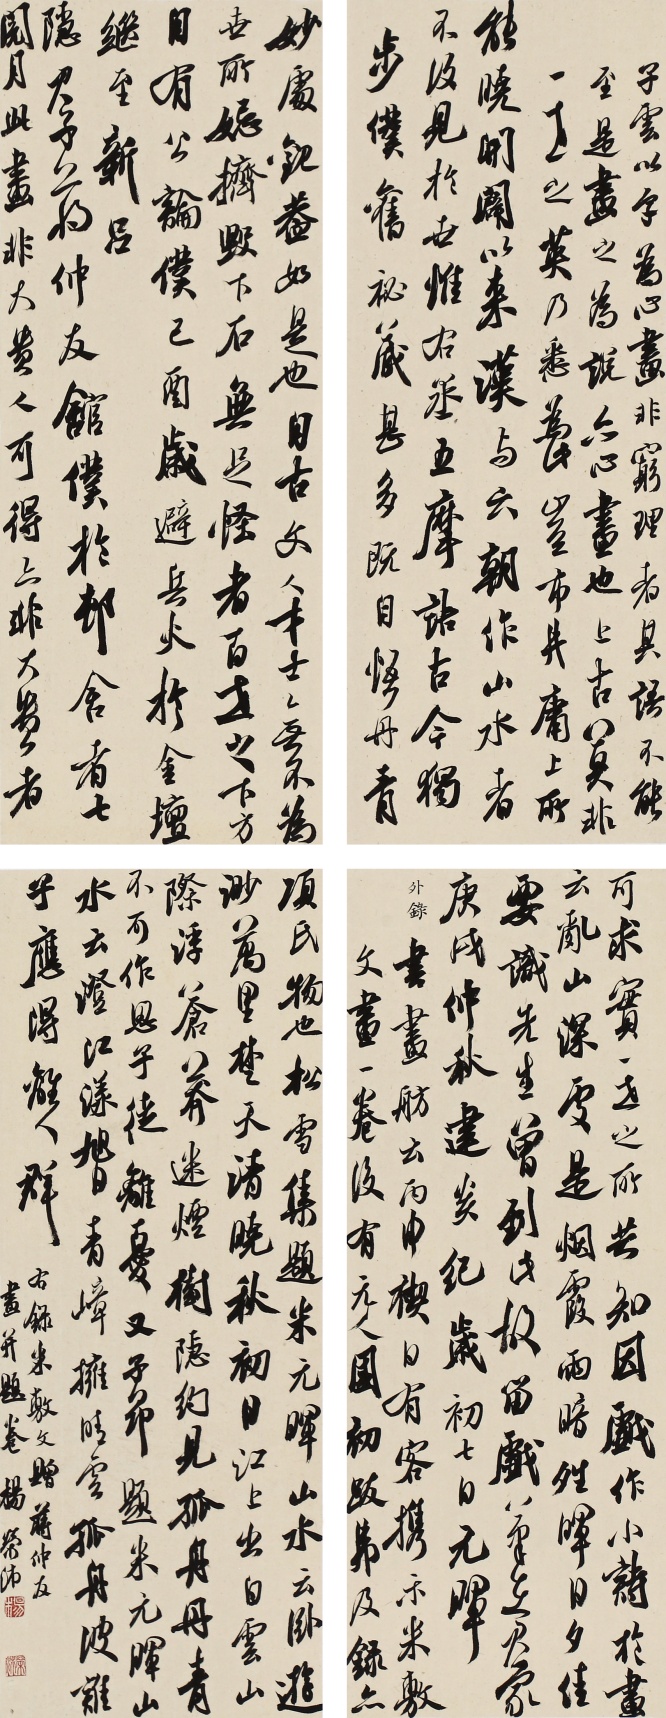 子雲以字為心畫非窮理者其語不能
至是畫之為說亦心畫也上古莫非
一世之英乃悉為此豈市井庸工所
能曉開闢以來漢与六朝作山水者
不復見於世惟右丞王摩詰古今獨
步僕舊祕藏甚多既自悟丹青
妙處觀蓋如是也自古文人才士無不為
世所媢擠毀下石無足怪者百世之下方
自有公論僕己酉歲避兵火於金壇
繼至新昌
隱君子蔣仲友館僕於邨舍者七
閱月此畫非大貴人可得亦非大貴者
可求實一世之所共知因戲作小詩於畫
云亂山深處是烟霞雨暗晴暉日夕佳
要識先生曾到此故留戲筆在君家
庚戌仲秋建炎紀歲初七日元暉
外錄
書畫舫云丙申禊日有客携示米敷
文畫一卷後有元人國初跋弗及錄亦
項氏物也松雪集題米元暉山水云臥遊
渺萬里楚天清曉秋初日江上出白雲山
際浮蒼莽迷煙樹隱約見孤舟丹青
不可作思子徒離憂又子昂題米元暉山
水云澄江漾旭日青嶂擁晴雲孤舟彼誰
子應得離人群
右錄米敷文贈蔣仲友
畫并題卷 楊榮沛